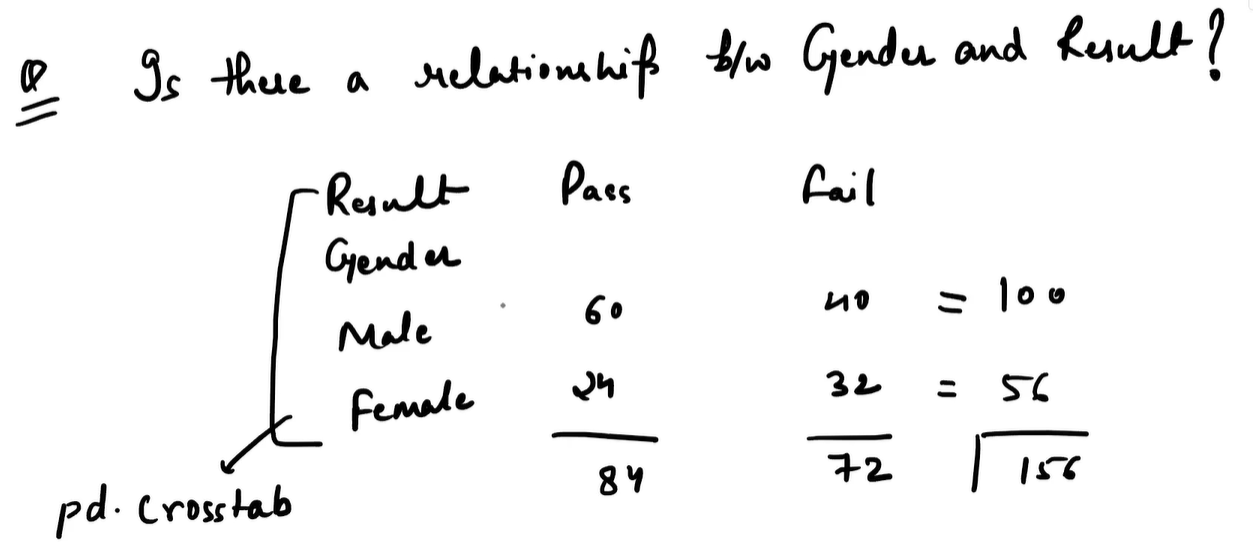 Q Is there a relationship b/w Gender and Result?
Result Pass Fail
Gender
Male 60 40 = 100
Female 24 32 = 56
84 72 156
pd. crosstab